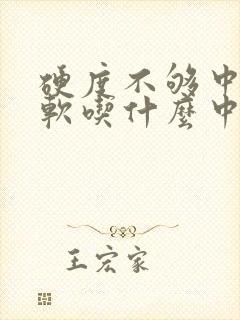 硬度不够中
軟喫什麼中
王宏家